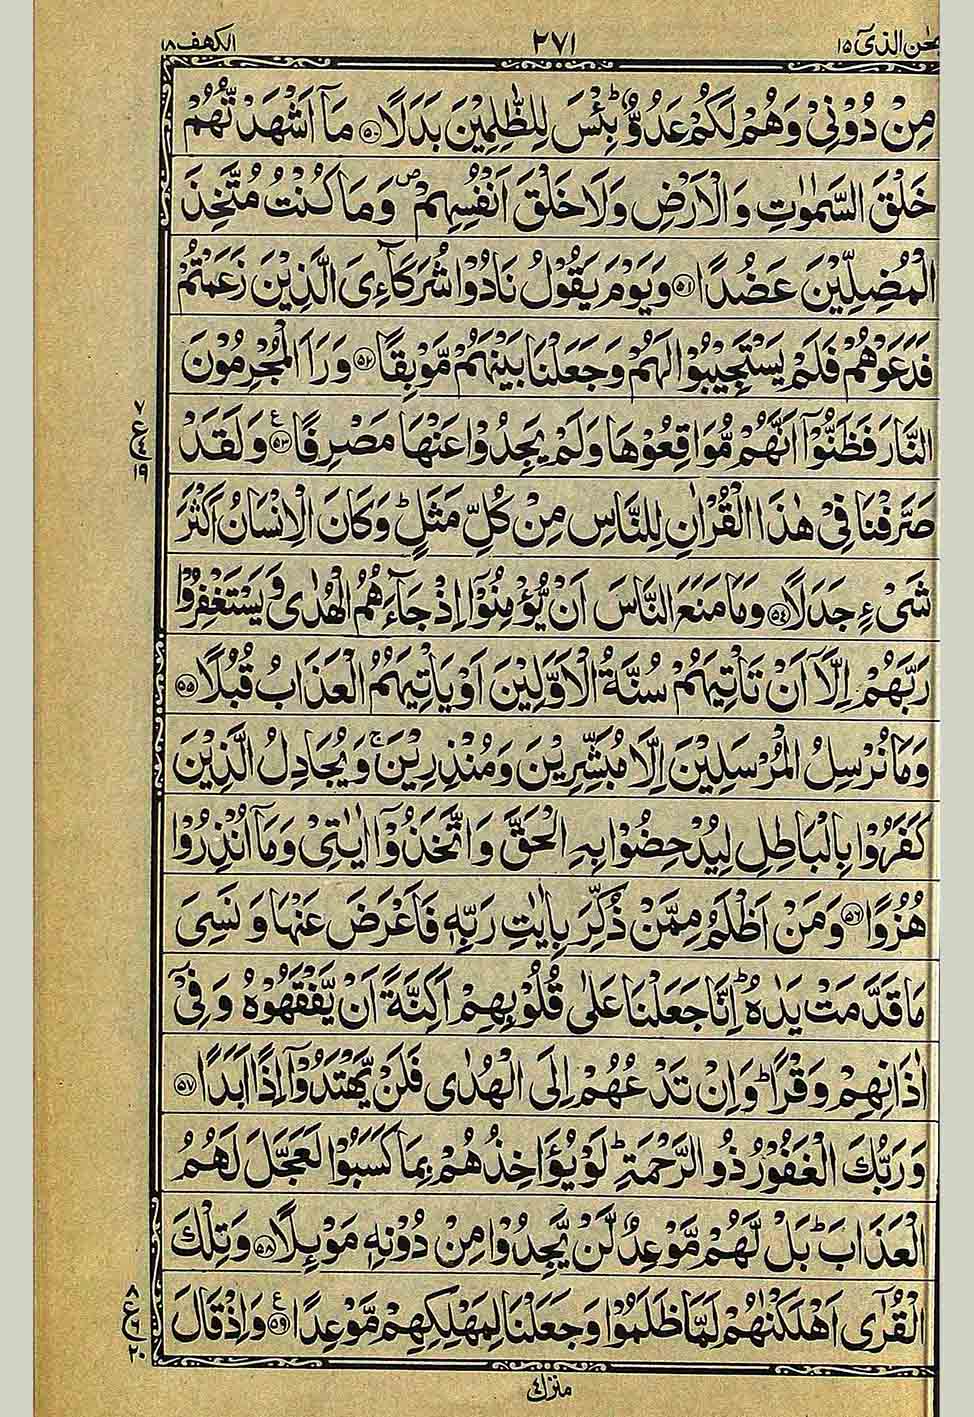 سبحٰن الذیٓ ١٥ ٢٧١ الكهف ١٨
مِنْ دُوْنِيْ وَهُمْ لَكُمْ عَدُوٌّ ؕ بِئْسَ لِلظّٰلِمِيْنَ بَدَلًا ۵۰ مَاۤ اَشْهَدْتُّهُمْ
خَلْقَ السَّمٰوٰتِ وَالْاَرْضِ وَلَا خَلْقَ اَنْفُسِهِمْ ۪ وَمَا كُنْتُ مُتَّخِذَ
الْمُضِلِّيْنَ عَضُدًا ۵۱ وَيَوْمَ يَقُوْلُ نَادُوْا شُرَكَآءِيَ الَّذِيْنَ زَعَمْتُمْ
فَدَعَوْهُمْ فَلَمْ يَسْتَجِيْبُوْا لَهُمْ وَجَعَلْنَا بَيْنَهُمْ مَّوْبِقًا ۵۲ وَرَاَ الْمُجْرِمُوْنَ
النَّارَ فَظَنُّوْۤا اَنَّهُمْ مُّوَاقِعُوْهَا وَلَمْ يَجِدُوْا عَنْهَا مَصْرِفًا ۵۳ ع وَلَقَدْ
٧ ع ٤ ١٩
صَرَّفْنَا فِيْ هٰذَا الْقُرْاٰنِ لِلنَّاسِ مِنْ كُلِّ مَثَلٍ ؕ وَكَانَ الْاِنْسَانُ اَكْثَرَ
شَيْءٍ جَدَلًا ۵۴ وَمَا مَنَعَ النَّاسَ اَنْ يُّؤْمِنُوْۤا اِذْ جَآءَهُمُ الْهُدٰى وَيَسْتَغْفِرُوْا
رَبَّهُمْ اِلَّاۤ اَنْ تَاْتِيَهُمْ سُنَّةُ الْاَوَّلِيْنَ اَوْ يَاْتِيَهُمُ الْعَذَابُ قُبُلًا ۵۵
وَمَا نُرْسِلُ الْمُرْسَلِيْنَ اِلَّا مُبَشِّرِيْنَ وَمُنْذِرِيْنَ ۚ وَيُجَادِلُ الَّذِيْنَ
كَفَرُوْا بِالْبَاطِلِ لِيُدْحِضُوْا بِهِ الْحَقَّ وَاتَّخَذُوْۤا اٰيٰتِيْ وَمَاۤ اُنْذِرُوْا
هُزُوًا ۵۶ وَمَنْ اَظْلَمُ مِمَّنْ ذُكِّرَ بِاٰيٰتِ رَبِّهٖ فَاَعْرَضَ عَنْهَا وَنَسِيَ
مَا قَدَّمَتْ يَدٰهُ ؕ اِنَّا جَعَلْنَا عَلٰى قُلُوْبِهِمْ اَكِنَّةً اَنْ يَّفْقَهُوْهُ وَفِيْۤ
اٰذَانِهِمْ وَقْرًا ؕ وَاِنْ تَدْعُهُمْ اِلَى الْهُدٰى فَلَنْ يَّهْتَدُوْۤا اِذًا اَبَدًا ۵۷
وَرَبُّكَ الْغَفُوْرُ ذُو الرَّحْمَةِ ؕ لَوْ يُؤَاخِذُهُمْ بِمَا كَسَبُوْا لَعَجَّلَ لَهُمُ
الْعَذَابَ ؕ بَلْ لَّهُمْ مَّوْعِدٌ لَّنْ يَّجِدُوْا مِنْ دُوْنِهٖ مَوْئِلًا ۵۸ وَتِلْكَ
الْقُرٰۤى اَهْلَكْنٰهُمْ لَمَّا ظَلَمُوْا وَجَعَلْنَا لِمَهْلِكِهِمْ مَّوْعِدًا ۵۹ ع وَاِذْ قَالَ
٨ ع ٦ ٢٠
منزل ٤